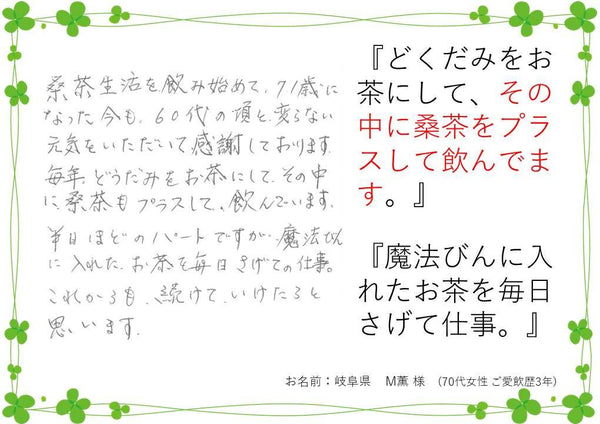 桑茶生活を飲み始めて、71歳に
なった今も、60代の頃と変らない
元気をいただいて感謝しております。
毎年どうだみをお茶にして、その中
に桑茶もプラスして、飲んでいます。
半日ほどのパートですが、魔法びん
に入れた、お茶を毎日さげての仕事。
これからも、続けて、いけたらと
思います。
『どくだみをお
茶にして、その
中に桑茶をプラ
スして飲んでま
す。』
『魔法びんに入
れたお茶を毎日
さげて仕事。』
お名前:岐阜県 M薫 様 (70代女性 ご愛飲歴3年)